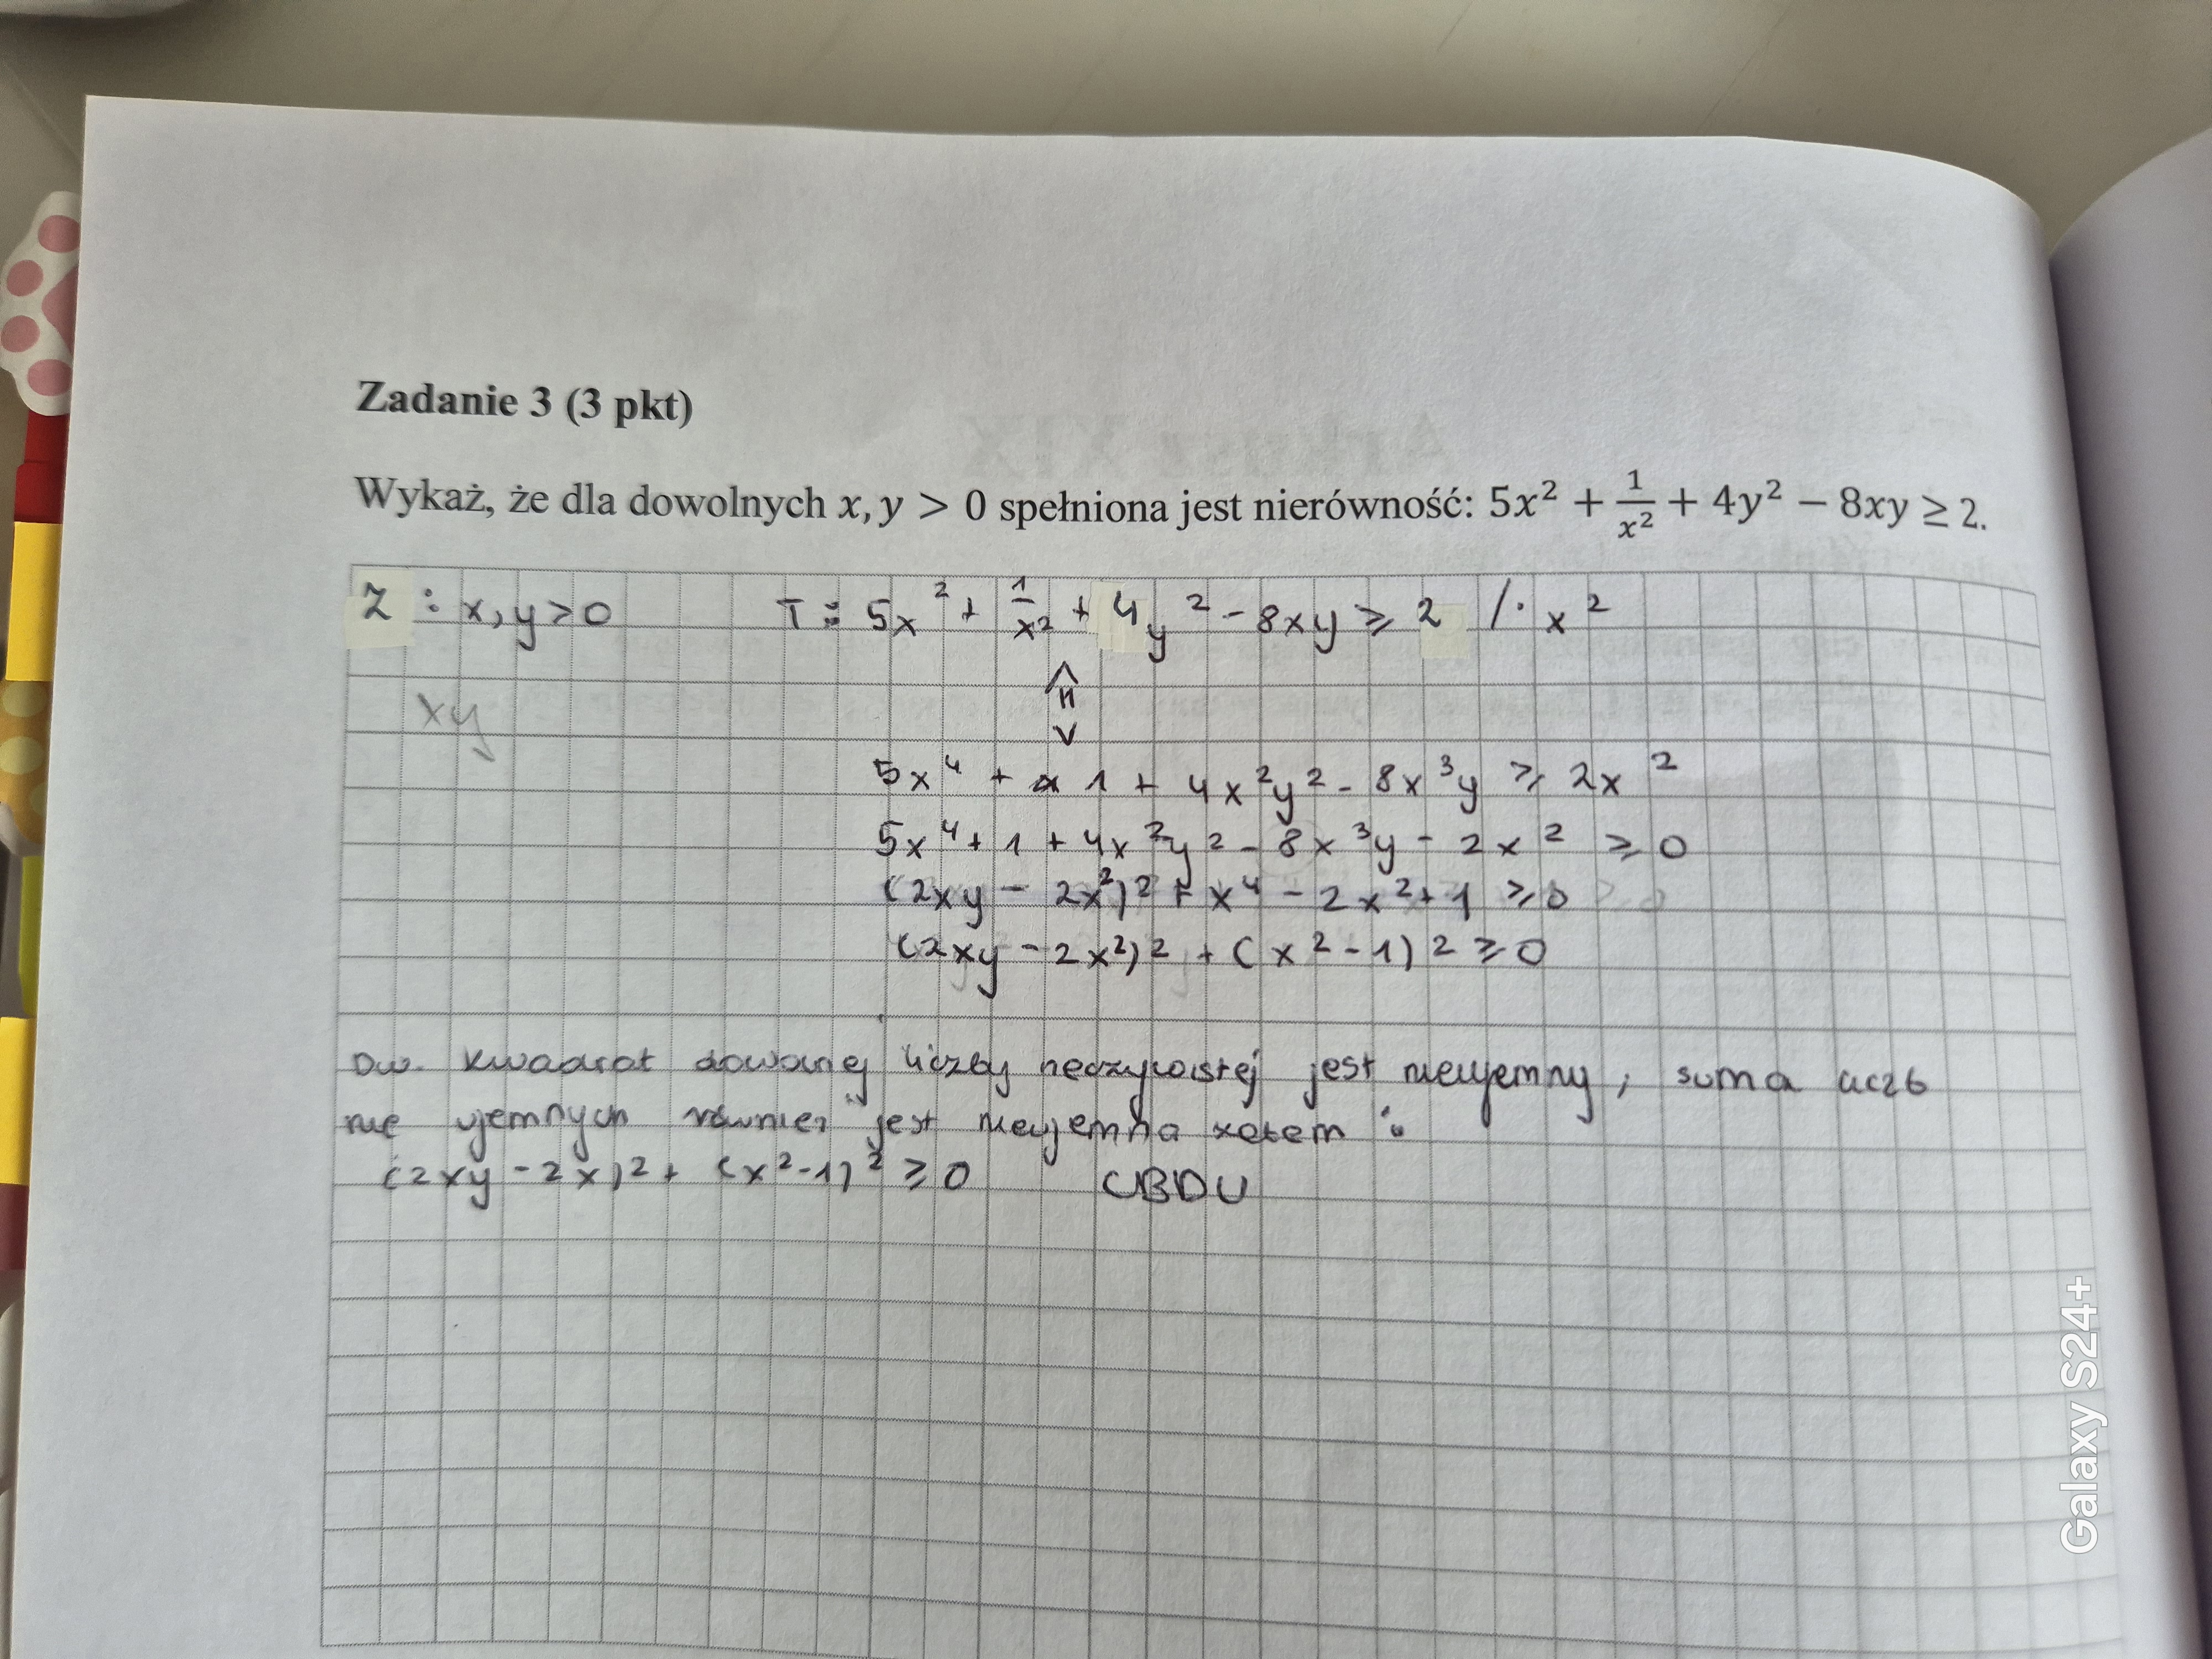 Zadanie 3 (3 pkt)
Wykaż, że dla dowolnych x, y > 0 spełniona jest nierówność: 5x² + 1/x² + 4y² − 8xy ≥ 2.
Z : x, y > 0 T : 5x² + 1/x² + 4y² - 8xy ≥ 2 /· x²
xy
5x⁴ + 1 + 4x²y² - 8x³y ≥ 2x²
5x⁴ + 1 + 4x²y² - 8x³y - 2x² ≥ 0
(2xy - 2x²)² + x⁴ - 2x² + 1 ≥ 0
(2xy - 2x²)² + (x² - 1)² ≥ 0
Dw. kwadrat dowolnej liczby rzeczywistej jest nieujemny, suma liczb
nie ujemnych również jest nieujemna zatem :
(2xy - 2x)² + (x² - 1)² ≥ 0 CBDU
Galaxy S24+